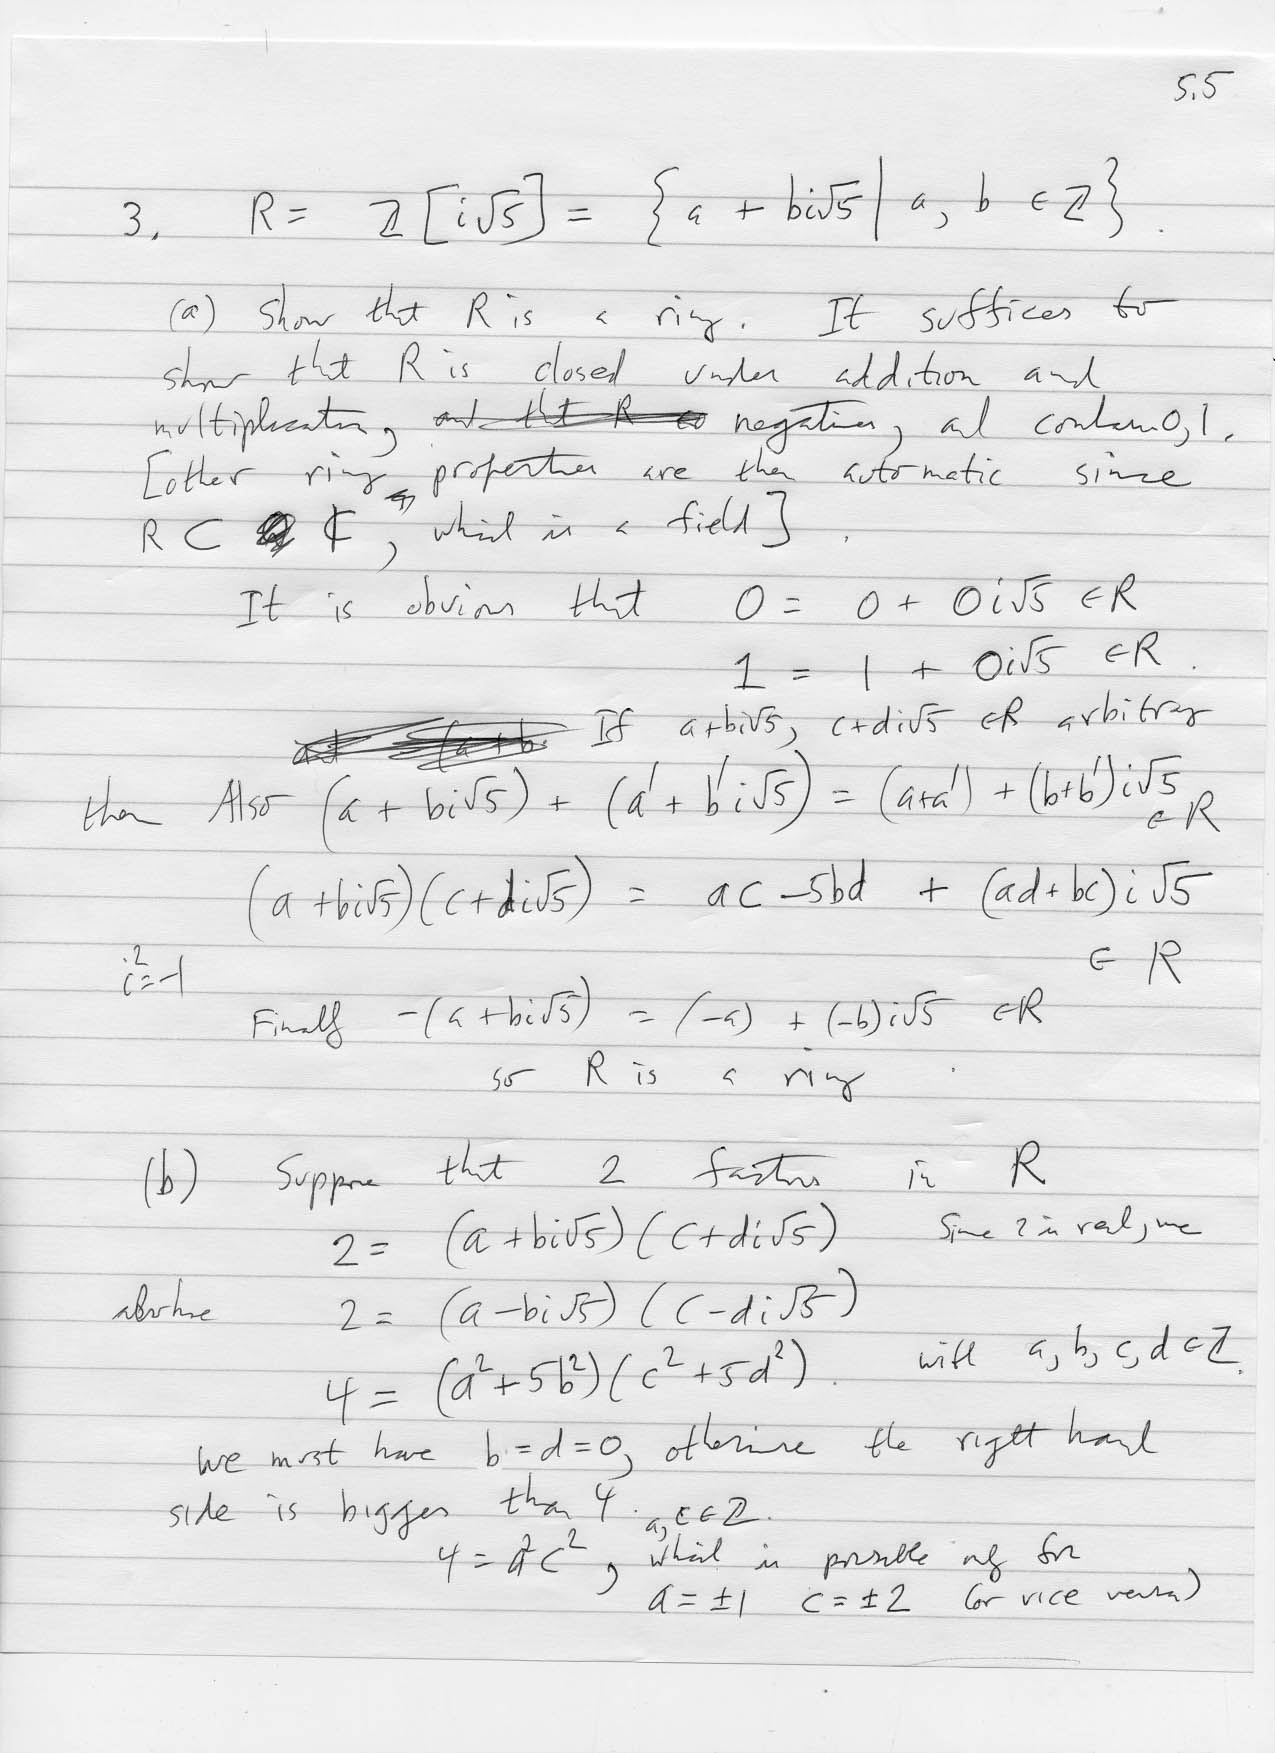 5.5
3. R = ℤ[i√5] = {a + bi√5 | a, b ∈ ℤ}.
(a) Show that R is a ring. It suffices to
show that R is closed under addition and
multiplication, and that R negatives, and contain 0, 1.
[other ring properties are then automatic since
R ⊂ ℂ, which is a field].
It is obvious that 0 = 0 + 0i√5 ∈ R
1 = 1 + 0i√5 ∈ R.
and (a+b If a+bi√5, c+di√5 ∈ R arbitrary
then Also (a + bi√5) + (a' + b'i√5) = (a+a') + (b+b')i√5
∈ R
(a+bi√5)(c+di√5) = ac - 5bd + (ad+bc)i√5
∈ R
i²=-1
Finally -(a+bi√5) = (-a) + (-b)i√5 ∈ R
so R is a ring.
(b) Suppose that 2 factors in R
2 = (a+bi√5)(c+di√5) Since 2 is real, we
also have 2 = (a-bi√5)(c-di√5)
4 = (a²+5b²)(c²+5d²). with a, b, c, d ∈ ℤ.
We must have b=d=0, otherwise the right hand
side is bigger than 4. a, c ∈ ℤ.
4 = a²c², which is possible only for
a = ±1 c = ±2 (or vice versa)